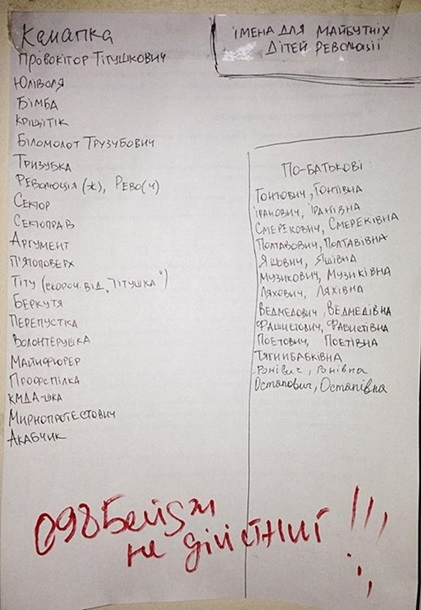 Імена для майбутніх
дітей Революції
Канапка
Провокітор Тітушкович
Юліволя
Бімба
Кріщітік
Біломолот Трузубович
Тризубка
Революція (ж), Рево(ч)
Сектор
Сектоправ
Аргумент
П'ятоповерх
Тіту (скороч. від „Тітушка")
Беркутя
Перепустка
Волонтерушка
Майнфюрер
Профспілка
КМДА-шка
Мирнопротестович
Акабчик
По-батькові
Гонтович, Гонтівна
Іранович, Іранівна
Смерекович, Смереківна
Полтавович, Полтавівна
Яцович, Яцівна
Музикович, Музиківна
Ляхович, Ляхівна
Ведмедович, Ведмедівна
Фашистович, Фашистівна
Поетович, Поетівна
Тягнибабківна
Остапович, Остапівна
098 Бейдж
не дійстний !!!